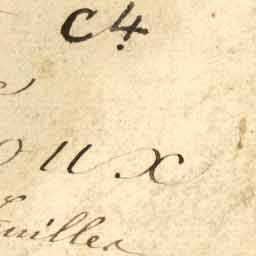 C4
oux
uilles